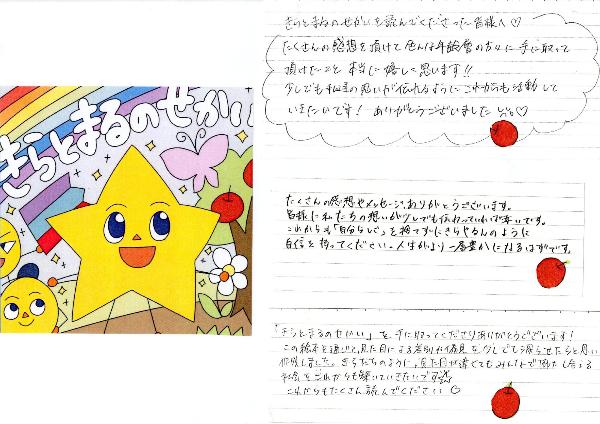 きらとまるのせかい
きらとまるのせかいを読んでくださった皆様へ♡
たくさんの感想を頂けて色んな年齢層の方々に手に取って
頂けたこと本当に嬉しく思います!!
少しでも私達の思いが伝わるようにこれからも活動して
いきたいです! ありがとうございました
たくさんの感想やメッセージ、ありがとうございます。
皆様に私たちの想いが少しでも伝わっていれば幸いです。
これからも「自分らしさ」を捨てずにきらやまるのように
自信を持ってください。人生がより一層豊かになるはずです。
「きらとまるのせかい」を手に取ってくださりありがとうございます!
この絵本を通じて、見た目による差別や偏見を少しでも減らせたらと思い
作成しました。きらたちのように、見た目が違くてもみんなで助け合える
社会をこれからも築いていきたいです
これからもたくさん読んでください